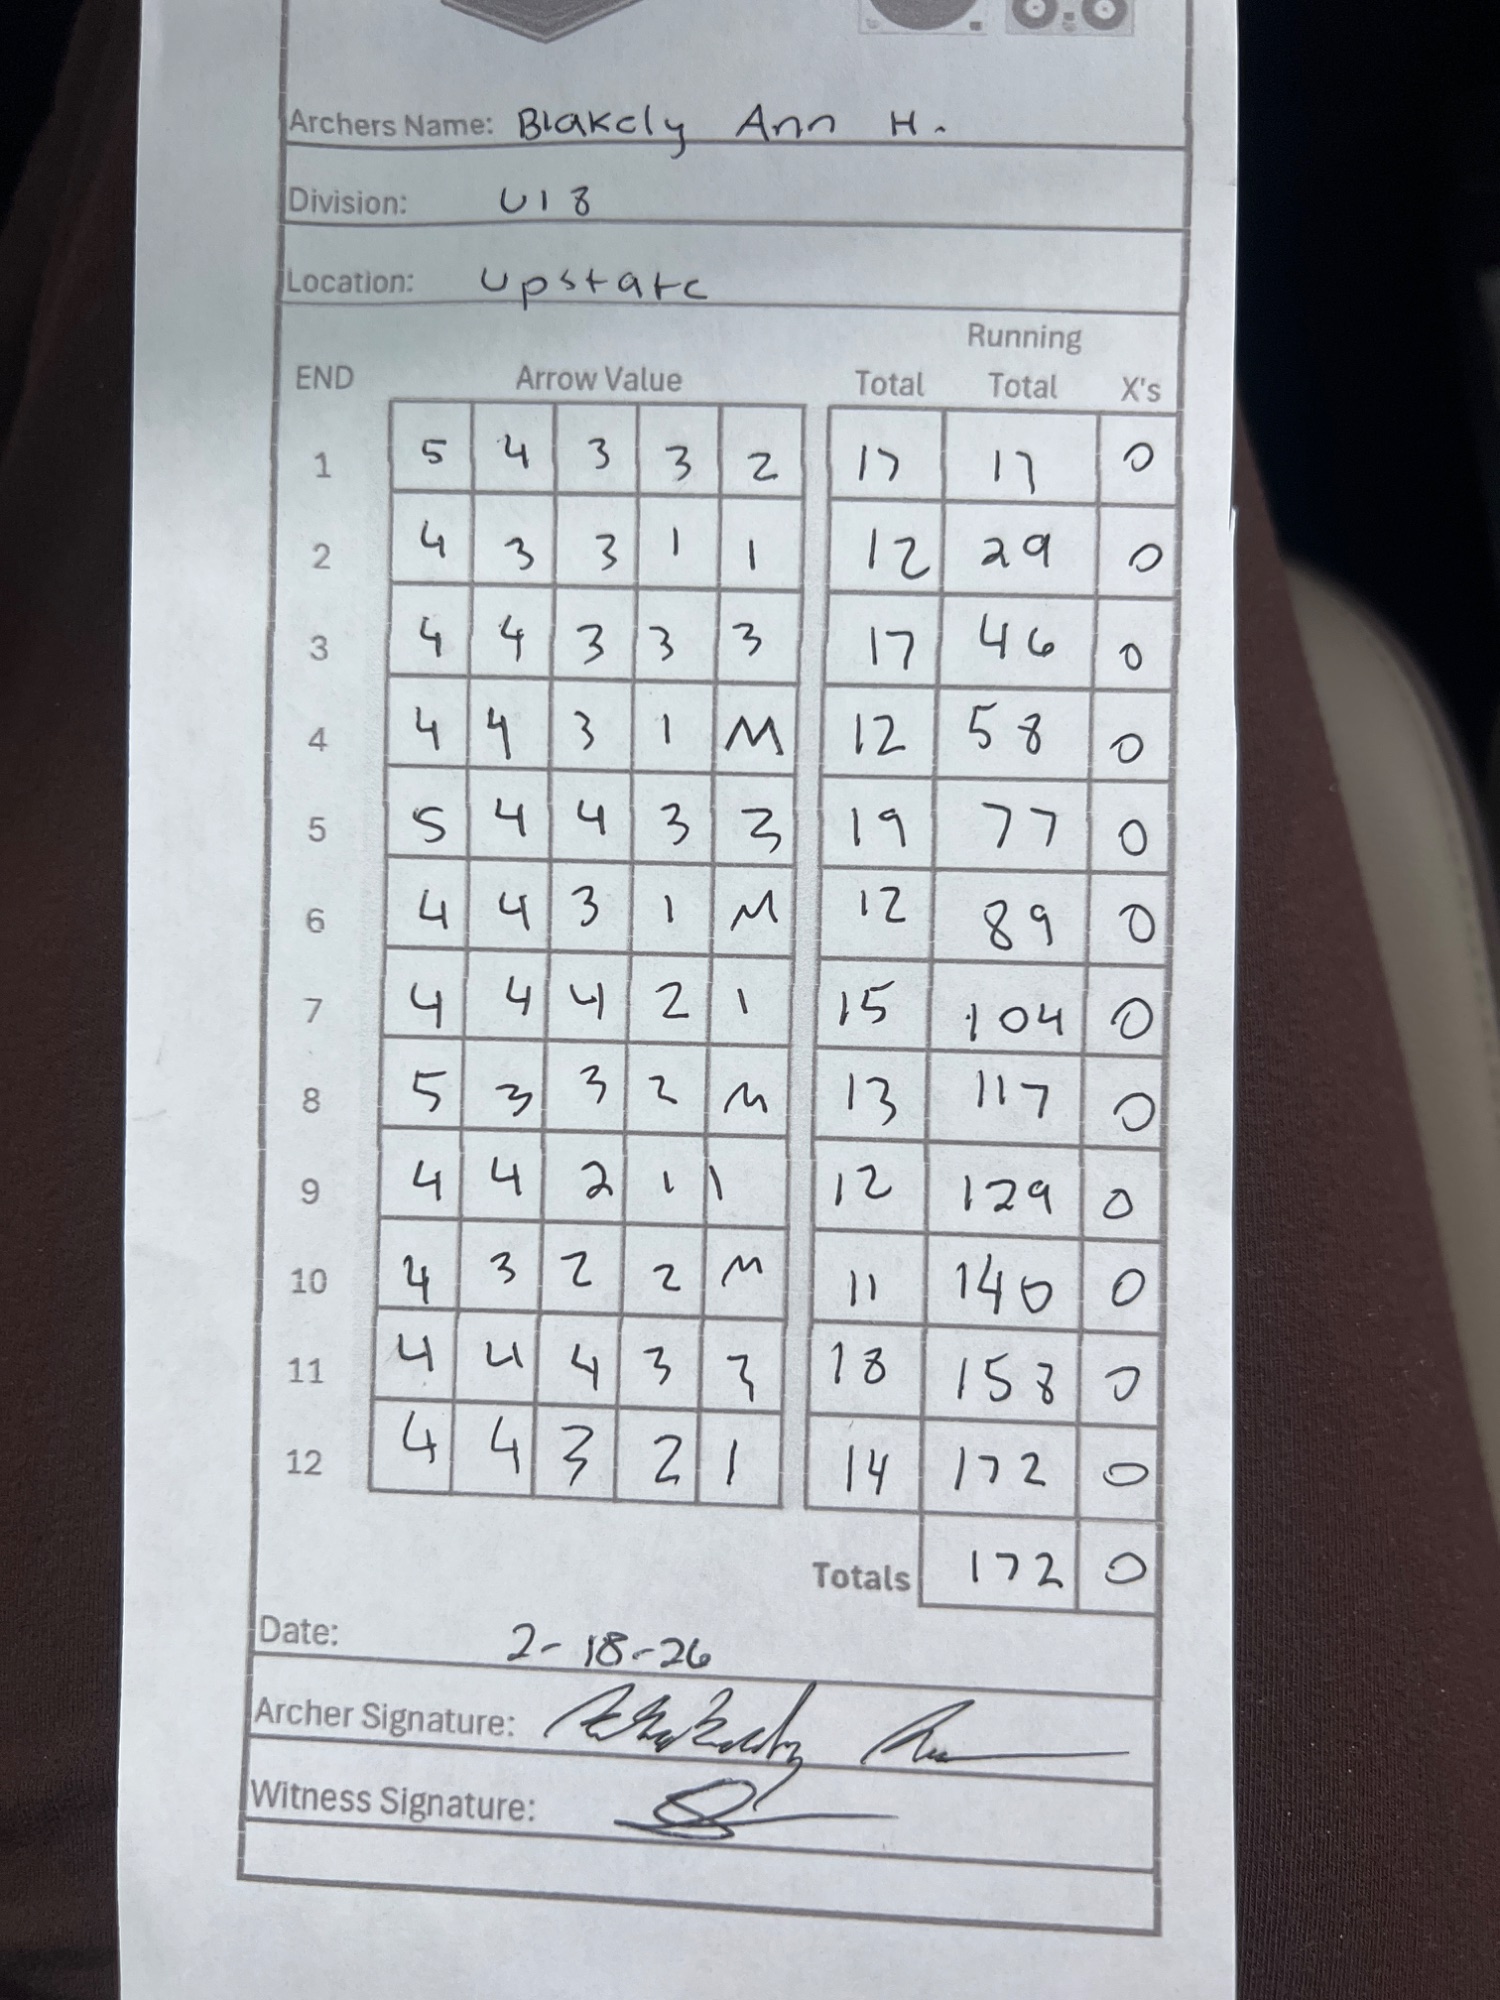 Archers Name: Blakely Ann H.
Division: U18
Location: Upstate
Running
END Arrow Value Total Total X's
1 5 4 3 3 2 17 17 0
2 4 3 3 1 1 12 29 0
3 4 4 3 3 3 17 46 0
4 4 4 3 1 M 12 58 0
5 5 4 4 3 3 19 77 0
6 4 4 3 1 M 12 89 0
7 4 4 4 2 1 15 104 0
8 5 3 3 2 M 13 117 0
9 4 4 2 1 1 12 129 0
10 4 3 2 2 M 11 140 0
11 4 4 4 3 3 18 158 0
12 4 4 3 2 1 14 172 0
Totals 172 0
Date: 2-18-26
Archer Signature:
Witness Signature: